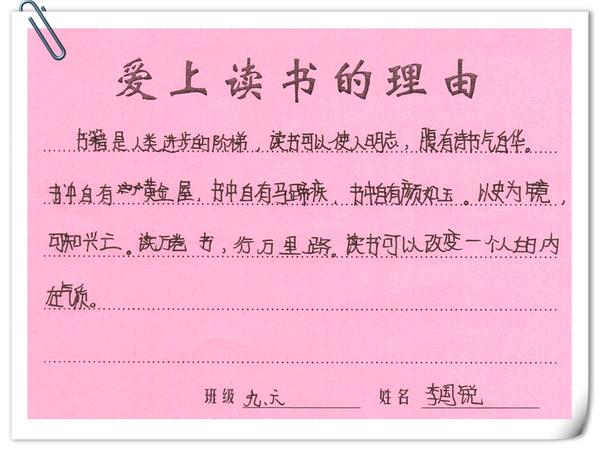 爱上读书的理由
书籍是人类进步的阶梯，读书可以使人明志，腹有诗书气自华。
书中自有黄金屋，书中自有马蹄疾，书中自有颜如玉。以史为镜，
可知兴亡。读万卷书，行万里路。读书可以改变一个人的内
在气质。
班级 九、元 姓名 李周锐